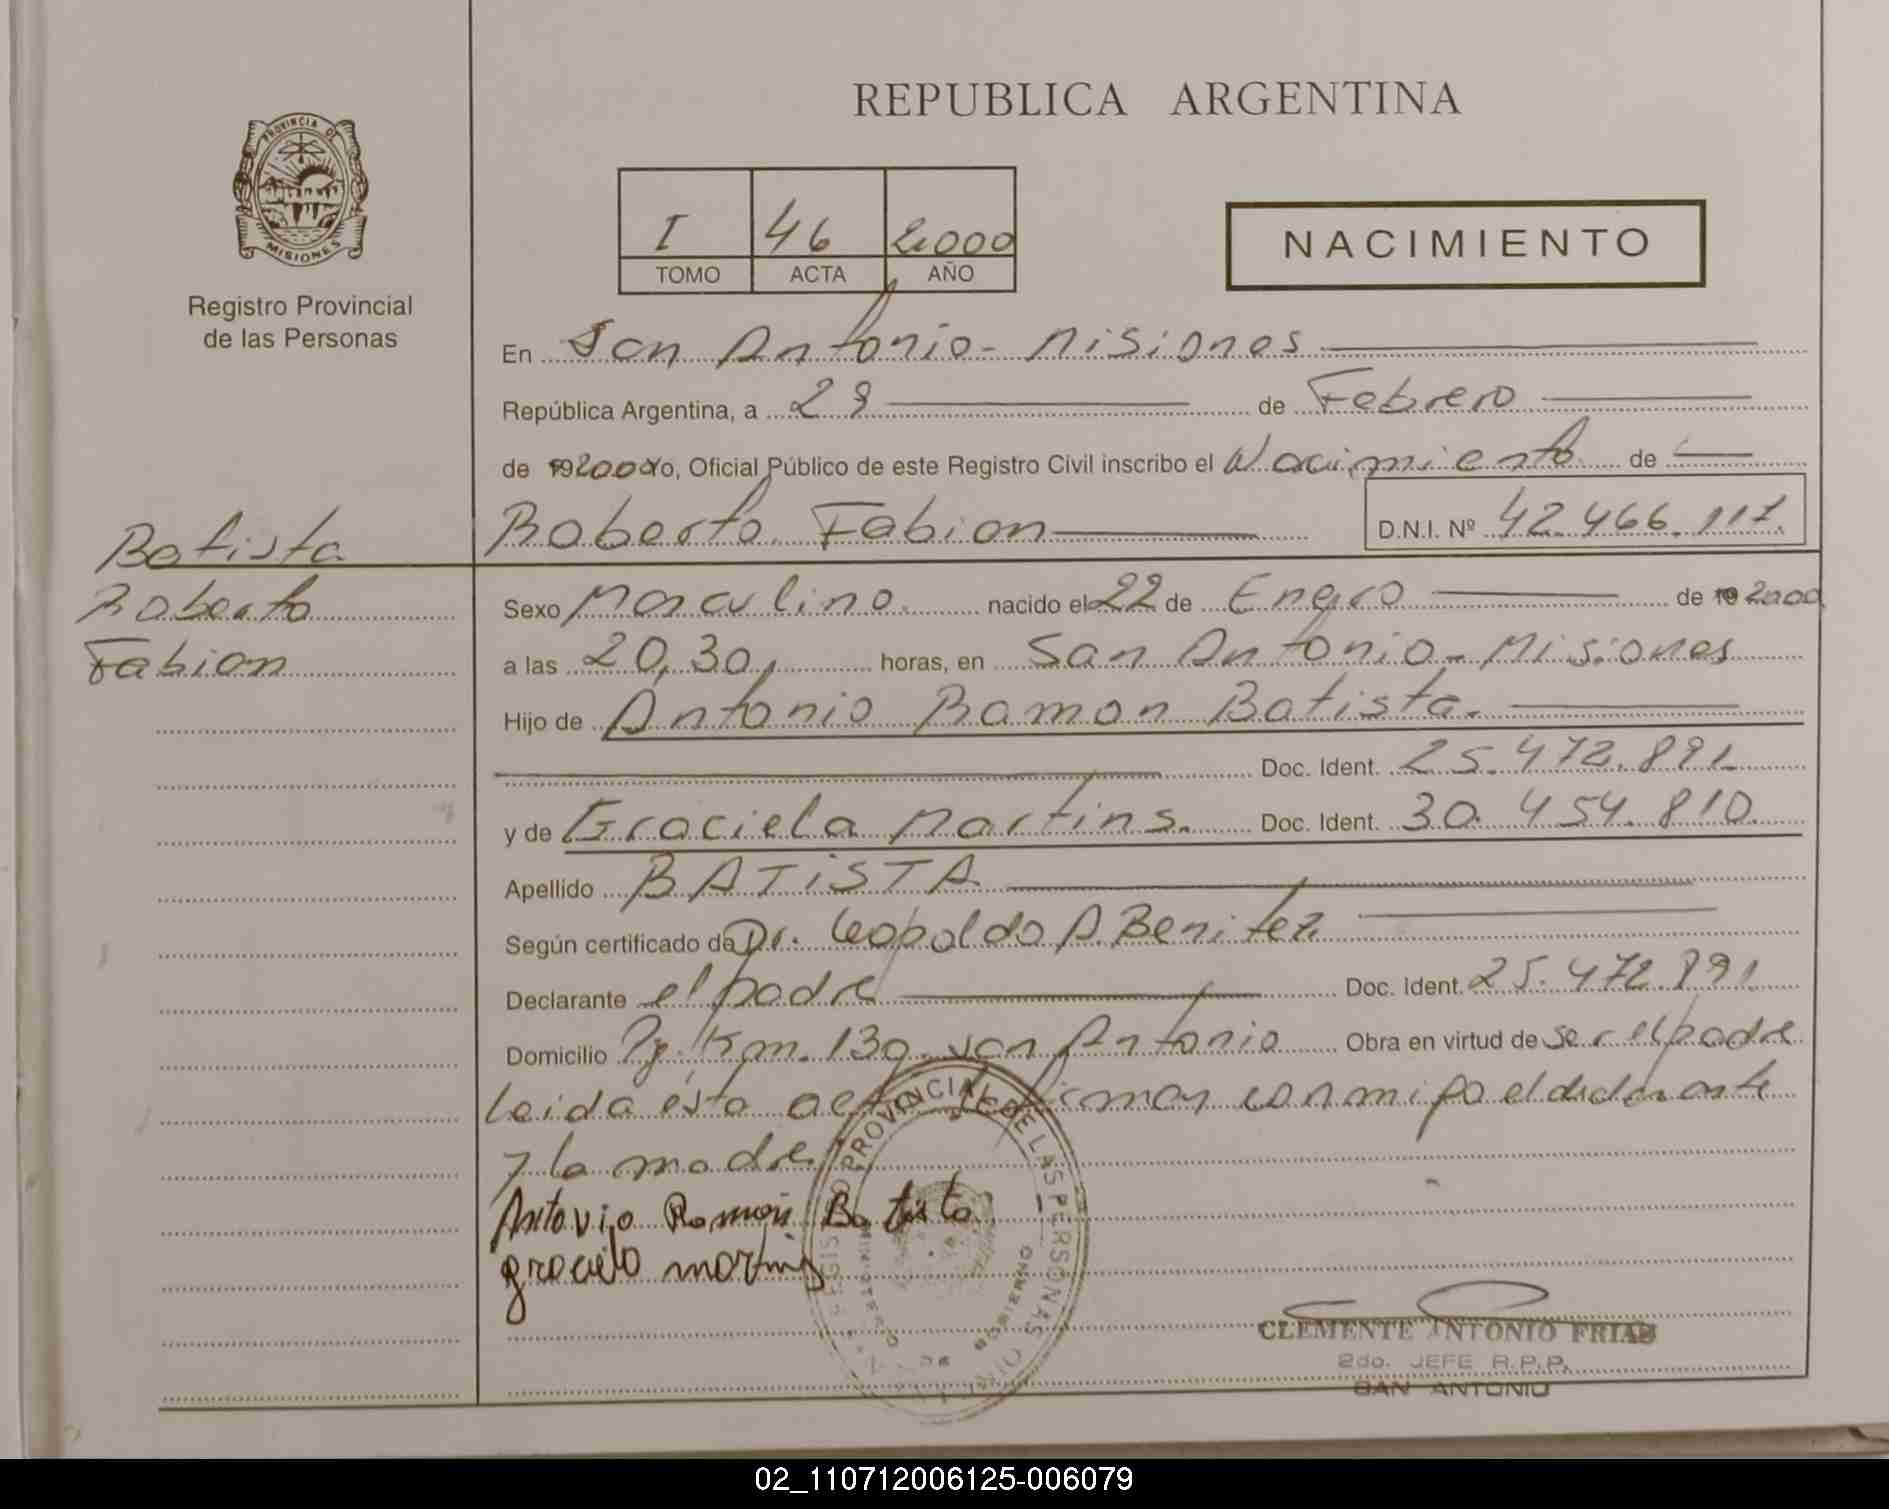 REPUBLICA ARGENTINA
PROVINCIA DE
MISIONES
Registro Provincial
de las Personas
I 46 2000
TOMO ACTA AÑO
NACIMIENTO
En San Antonio - Misiones
República Argentina, a 28 de Febrero
de 2000 Yo, Oficial Público de este Registro Civil inscribo el Nacimiento de
Roberto Fabian D.N.I. Nº 42.466.117.
Batista
Roberto
Fabian
Sexo Masculino nacido el 22 de Enero de 19 2000
a las 20,30, horas, en San Antonio - Misiones
Hijo de Antonio Ramon Batista.
Doc. Ident. 25.472.891
y de Graciela Martins. Doc. Ident. 30.454.810
Apellido BATiSTA
Según certificado de Dr. Leopoldo A. Benitez
Declarante el padre Doc. Ident. 25.472.891
Domicilio Pje. Km. 130. San Antonio Obra en virtud de ser el padre
Leida ésta acta la firman conmigo el declarante
y la madre
Antonio Ramón Batista
graciela martins
REGISTRO PROVINCIAL DE LAS PERSONAS
MINISTERIO DE GOBIERNO
CLEMENTE ANTONIO FRIAS
2do. JEFE R.P.P.
SAN ANTONIO
02_110712006125-006079